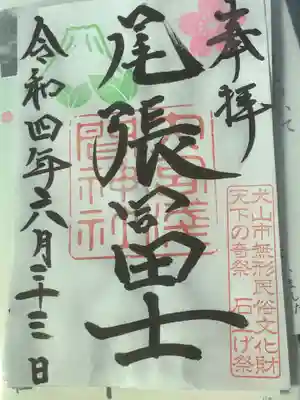 奉拝
犬山市無形民俗文化財
天下の奇祭 石上げ祭
尾張冨士
大宮浅
間神社
令和四年六月二十三日